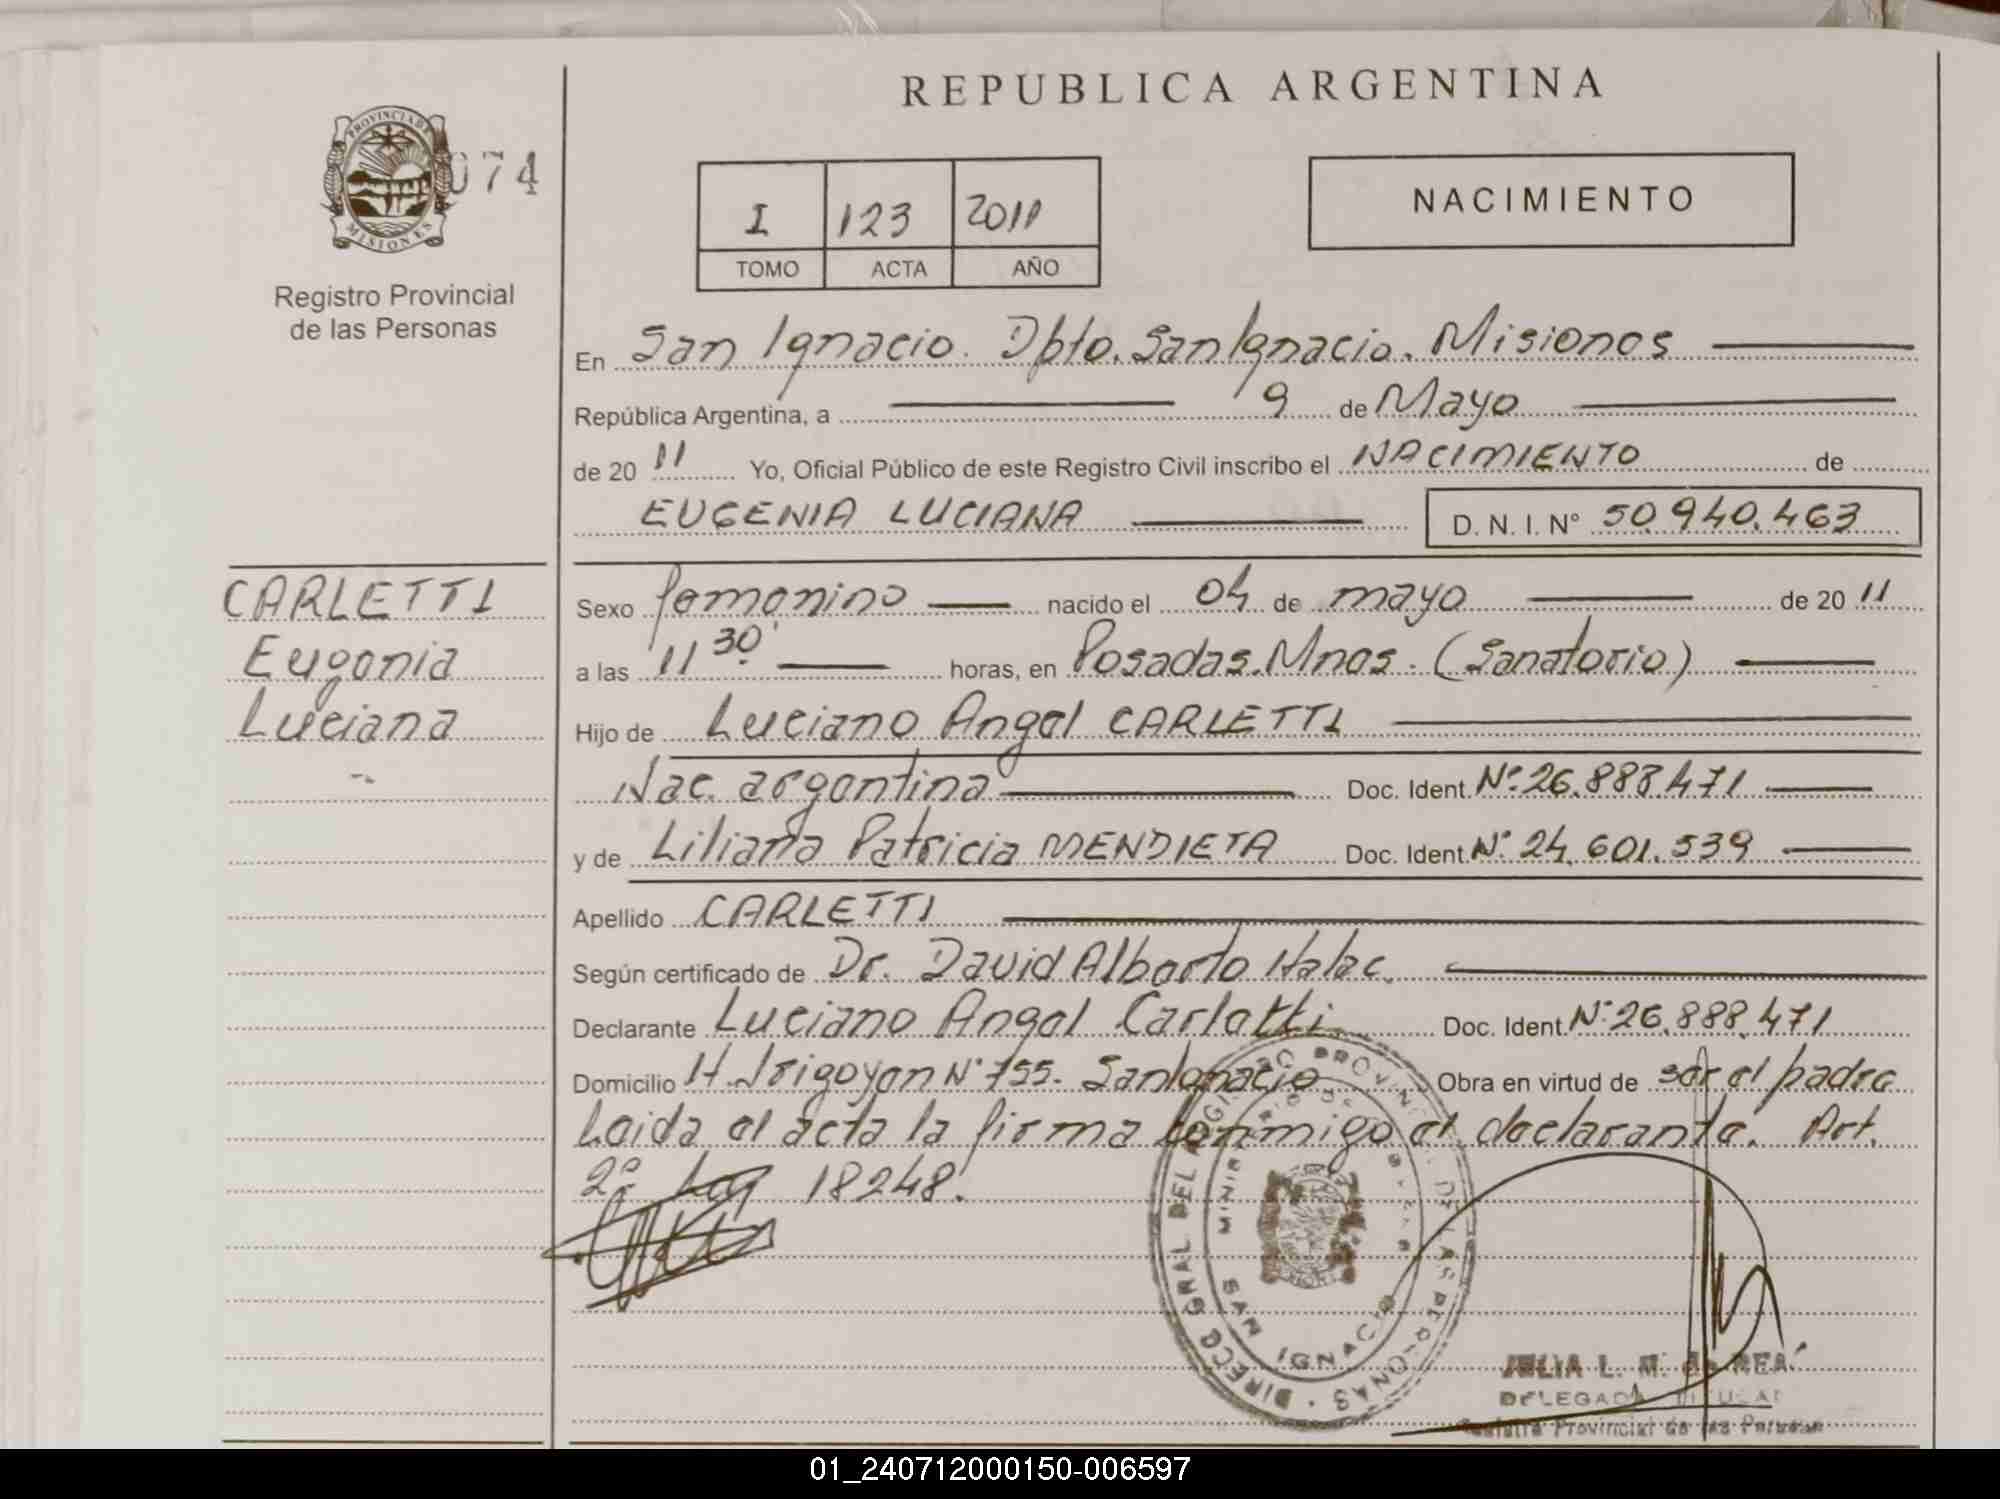 REPUBLICA ARGENTINA
PROVINCIA DE
MISIONES
074
Registro Provincial
de las Personas
I 123 2011
TOMO ACTA AÑO
NACIMIENTO
En San Ignacio. Dpto. San Ignacio. Misiones
República Argentina, a 9 de Mayo
de 2011 Yo, Oficial Público de este Registro Civil inscribo el NACIMIENTO de
EUGENIA LUCIANA D. N. I. N° 50.940.463
CARLETTI
Eugenia
Luciana
Sexo femenino nacido el 04 de mayo de 2011
a las 11 30 horas, en Posadas. Mnes. (Sanatorio)
Hijo de Luciano Angel CARLETTI
Nac. argentina Doc. Ident. N° 26.888.471
y de Liliana Patricia MENDIETA Doc. Ident. N° 24.601.539
Apellido CARLETTI
Según certificado de Dr. David Alberto Halac.
Declarante Luciano Angel Carletti Doc. Ident. N° 26.888.471
Domicilio H. Irigoyen N° 755. San Ignacio Obra en virtud de ser el padre
Leida el acta la firma conmigo el declarante. Art.
2° Ley 18248.
DIRECC GRAL DEL REGISTRO PROVINCIAL DE LAS PERSONAS
MINISTERIO DE GOBIERNO
SAN IGNACIO
JULIA L. M. de
DELEGADA TITULAR
Registro Provincial de las Personas
01_240712000150-006597